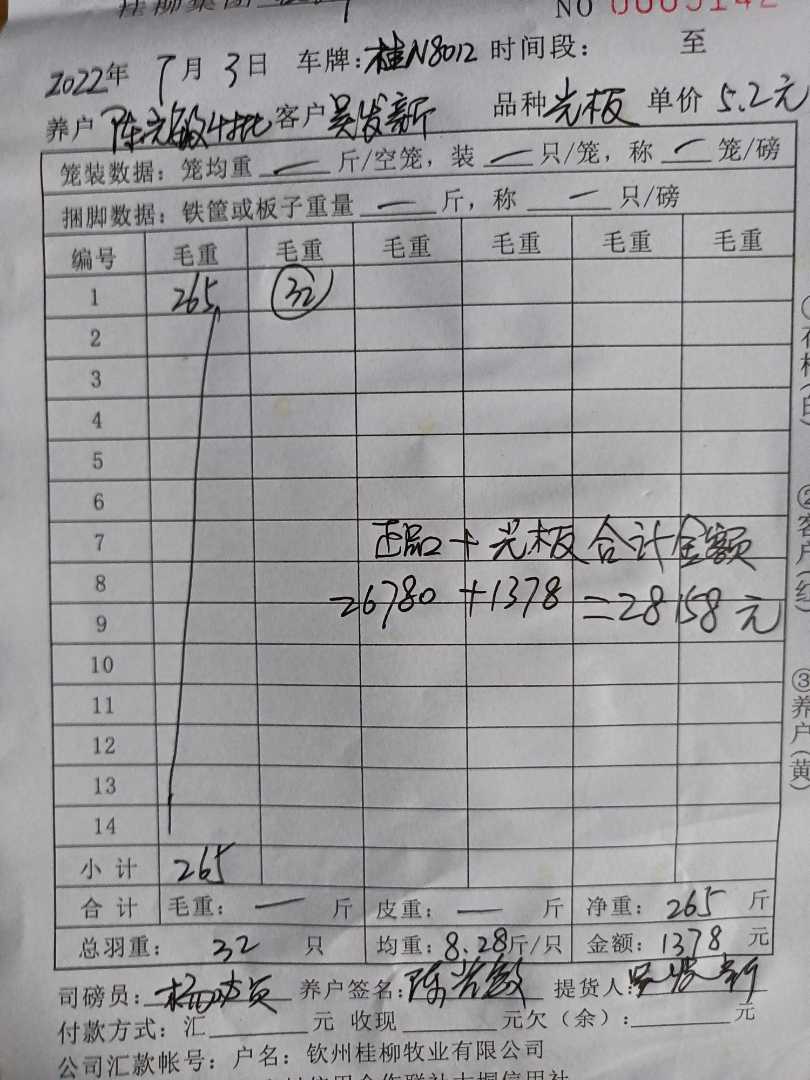 桂柳集团
NO 0003142
2022年 7月 3日 车牌:桂N8012 时间段: 至
养户 陈光敏4批 客户 吴发新 品种 光板 单价 5.2元
笼装数据: 笼均重 — 斤/空笼, 装 — 只/笼, 称 — 笼/磅
捆脚数据: 铁筐或板子重量 — 斤, 称 — 只/磅
编号 毛重 毛重 毛重 毛重 毛重 毛重
1 265 32
2
3
4
5
6
7
正品+光板合计金额
8
26780+1378=28158元
9
10
11
12
13
14
小计 265
合计 毛重: — 斤 皮重: — 斤 净重: 265 斤
总羽重: 32 只 均重: 8.28斤/只 金额: 1378 元
司磅员: 养户签名: 陈光敏 提货人: 吴发新
付款方式: 汇 元 收现 元欠(余): 元
公司汇款帐号: 户名: 钦州桂柳牧业有限公司
②客户(红)
③养户(黄)